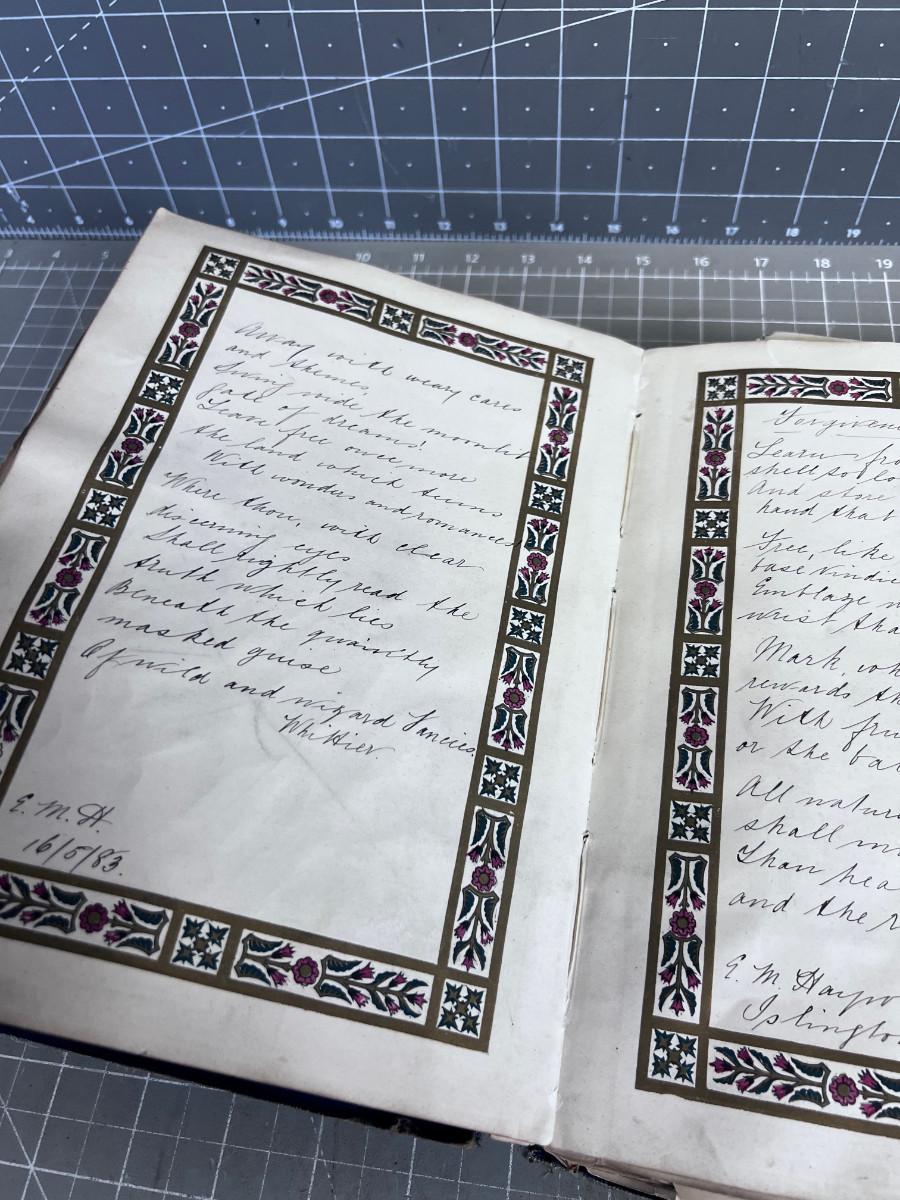 Away with weary cares
and themes
Swing wide the moonlit
gate of dreams!
Leave free once more
the land which teems
With wonders and romances
Where thou, with clear
discerning eyes
Shall rightly read the
truth which lies
Beneath the quaintly
masked guise
Of wild and wizard fancies.
Whittier.
E. M. H.
16/5/83.
Learn fro
And store
hand that
Free, like
base vindic
Emblaze
wrist tha
Mark, wh
rewards th
With fru
or the ba
All natur
shall
Than hea
and the r
E. M. Hayw
Islington
10 11 12 13 14 15 16 17 18 19
3 4 5 10 12 13 14 15 16 17 18 19